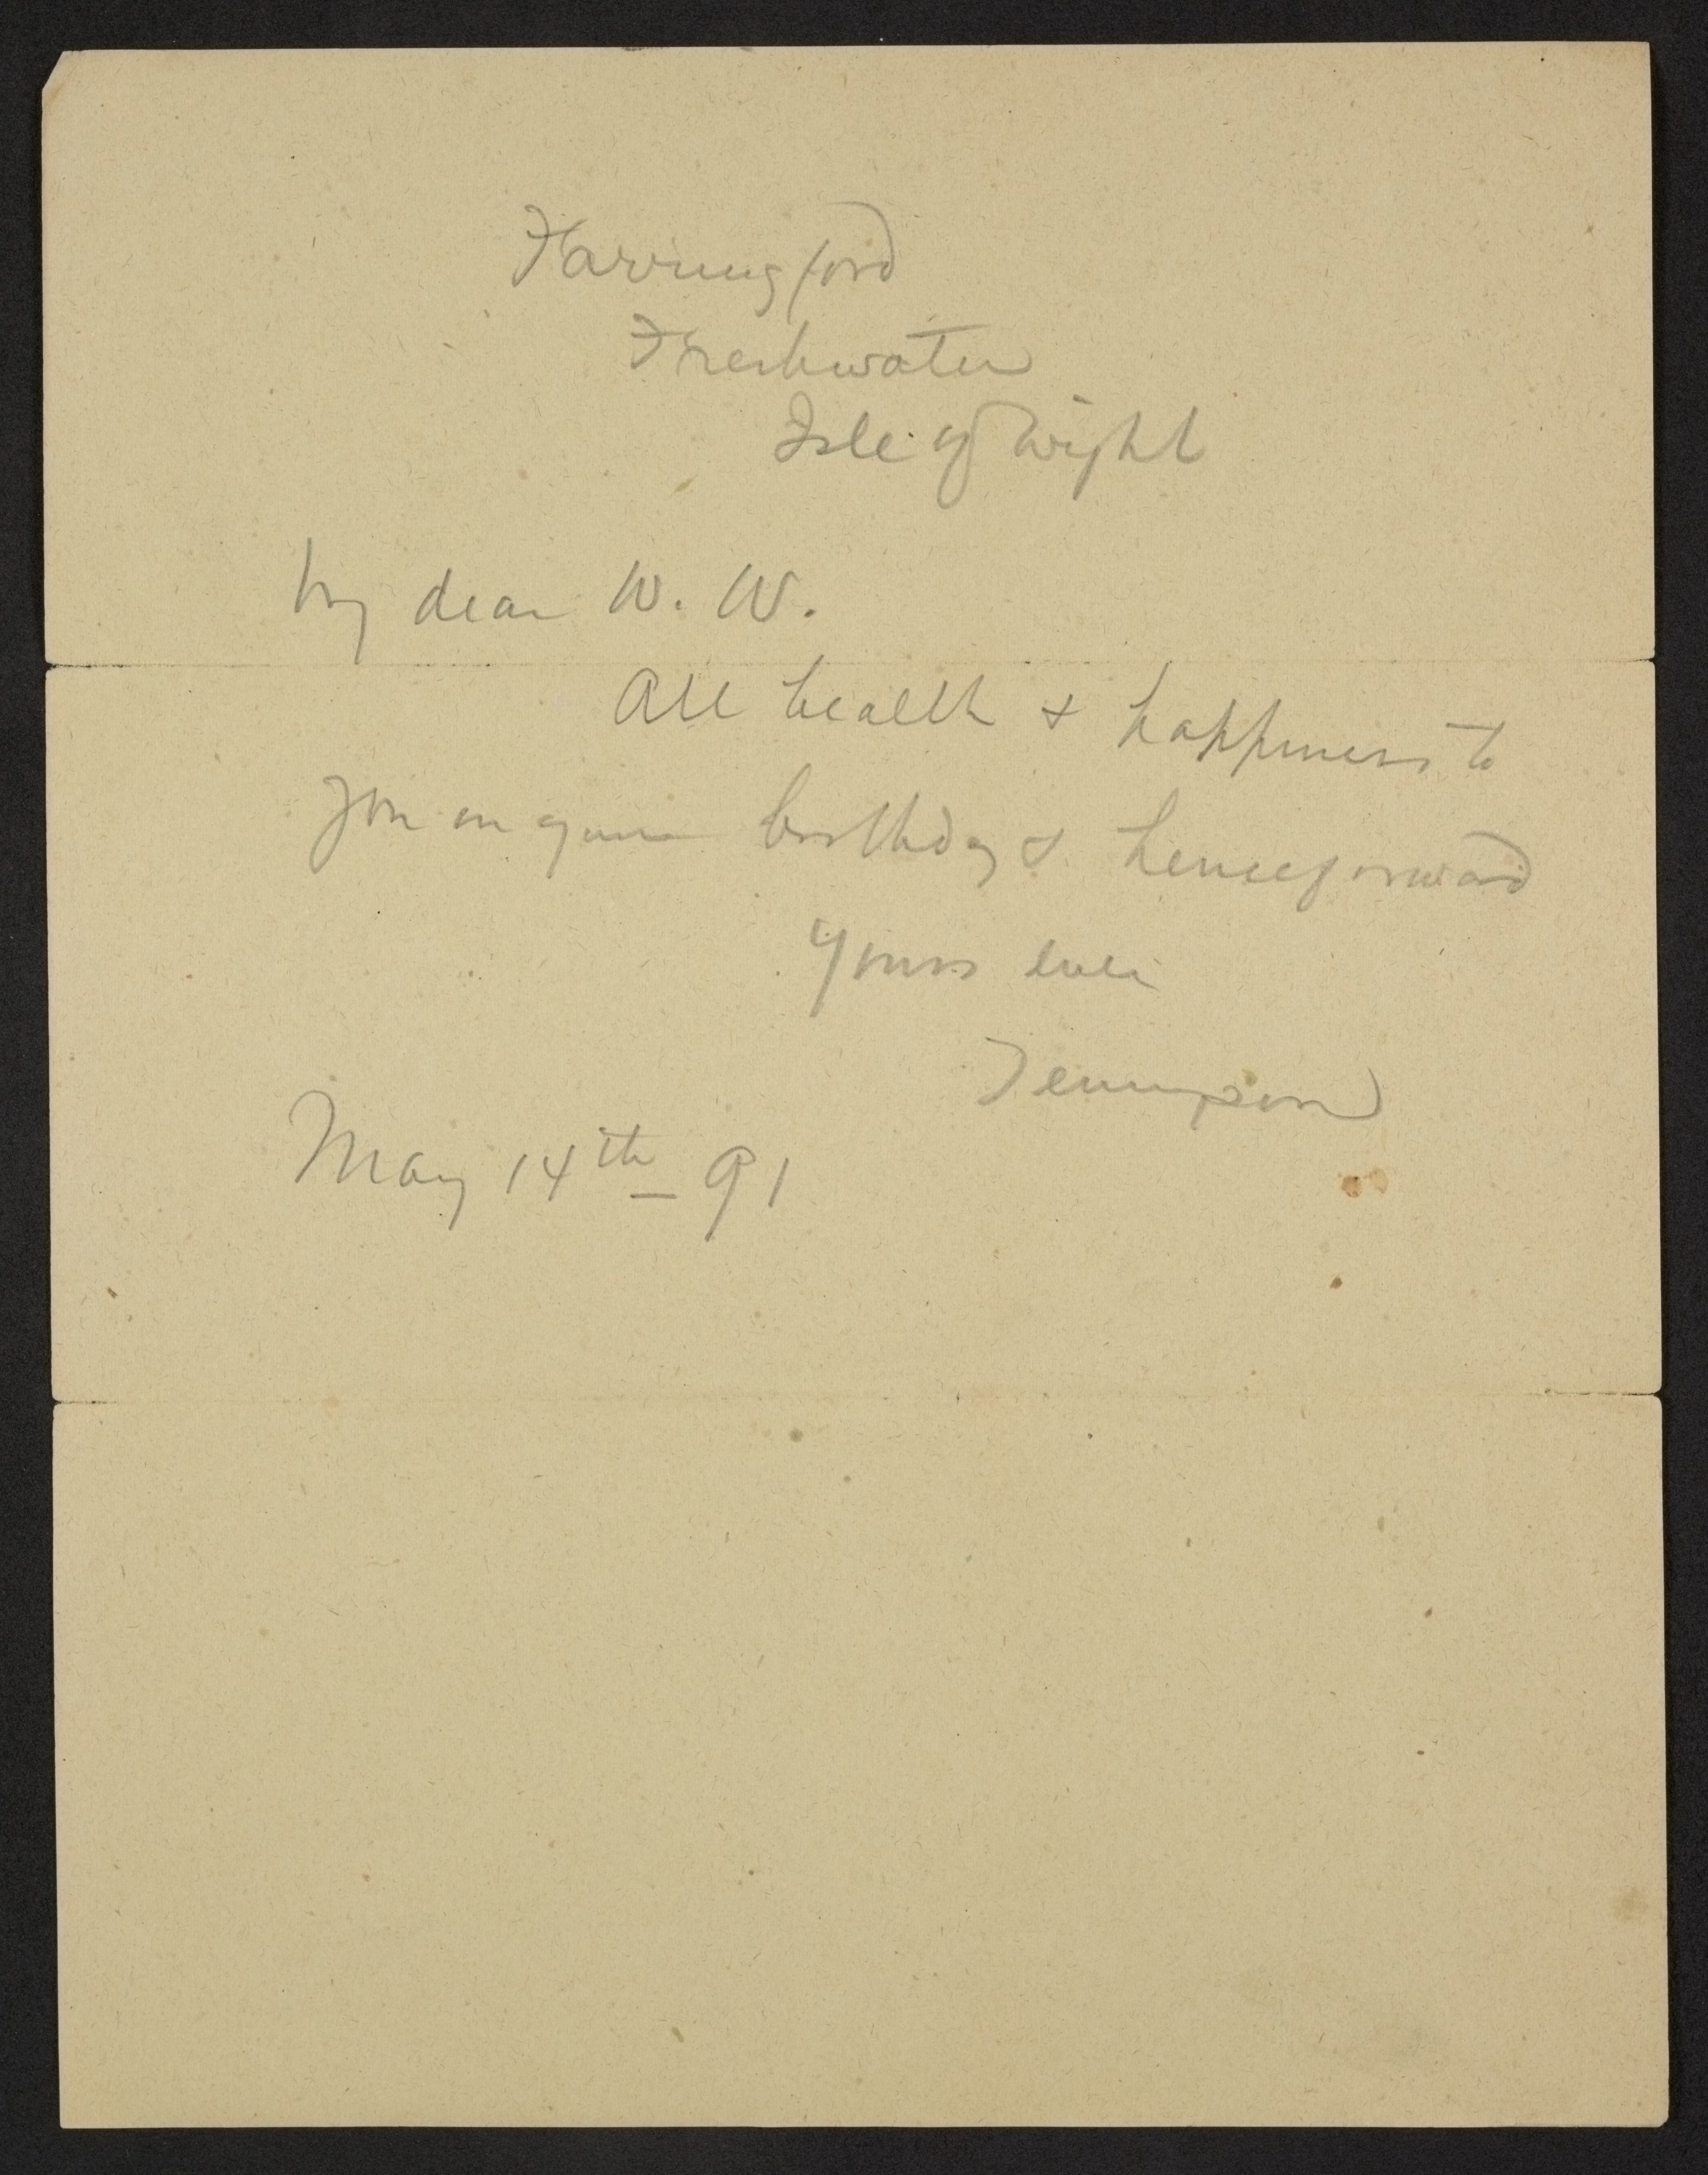 Farringford
Freshwater
Isle of Wight
My dear W. W.
All health & happiness to
you on your birthday & henceforward
Yours ever
Tennyson
May 14th – 91